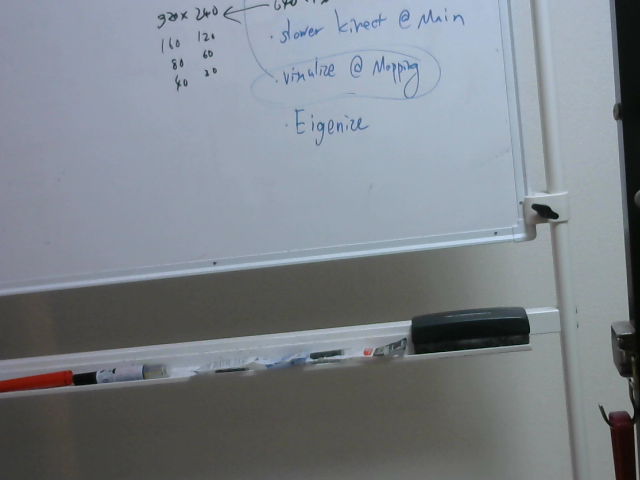 320 x 240 ←
160 120
80 60
40 30
· slower kinect @ Main
· visualize @ Mapping
· Eigenize